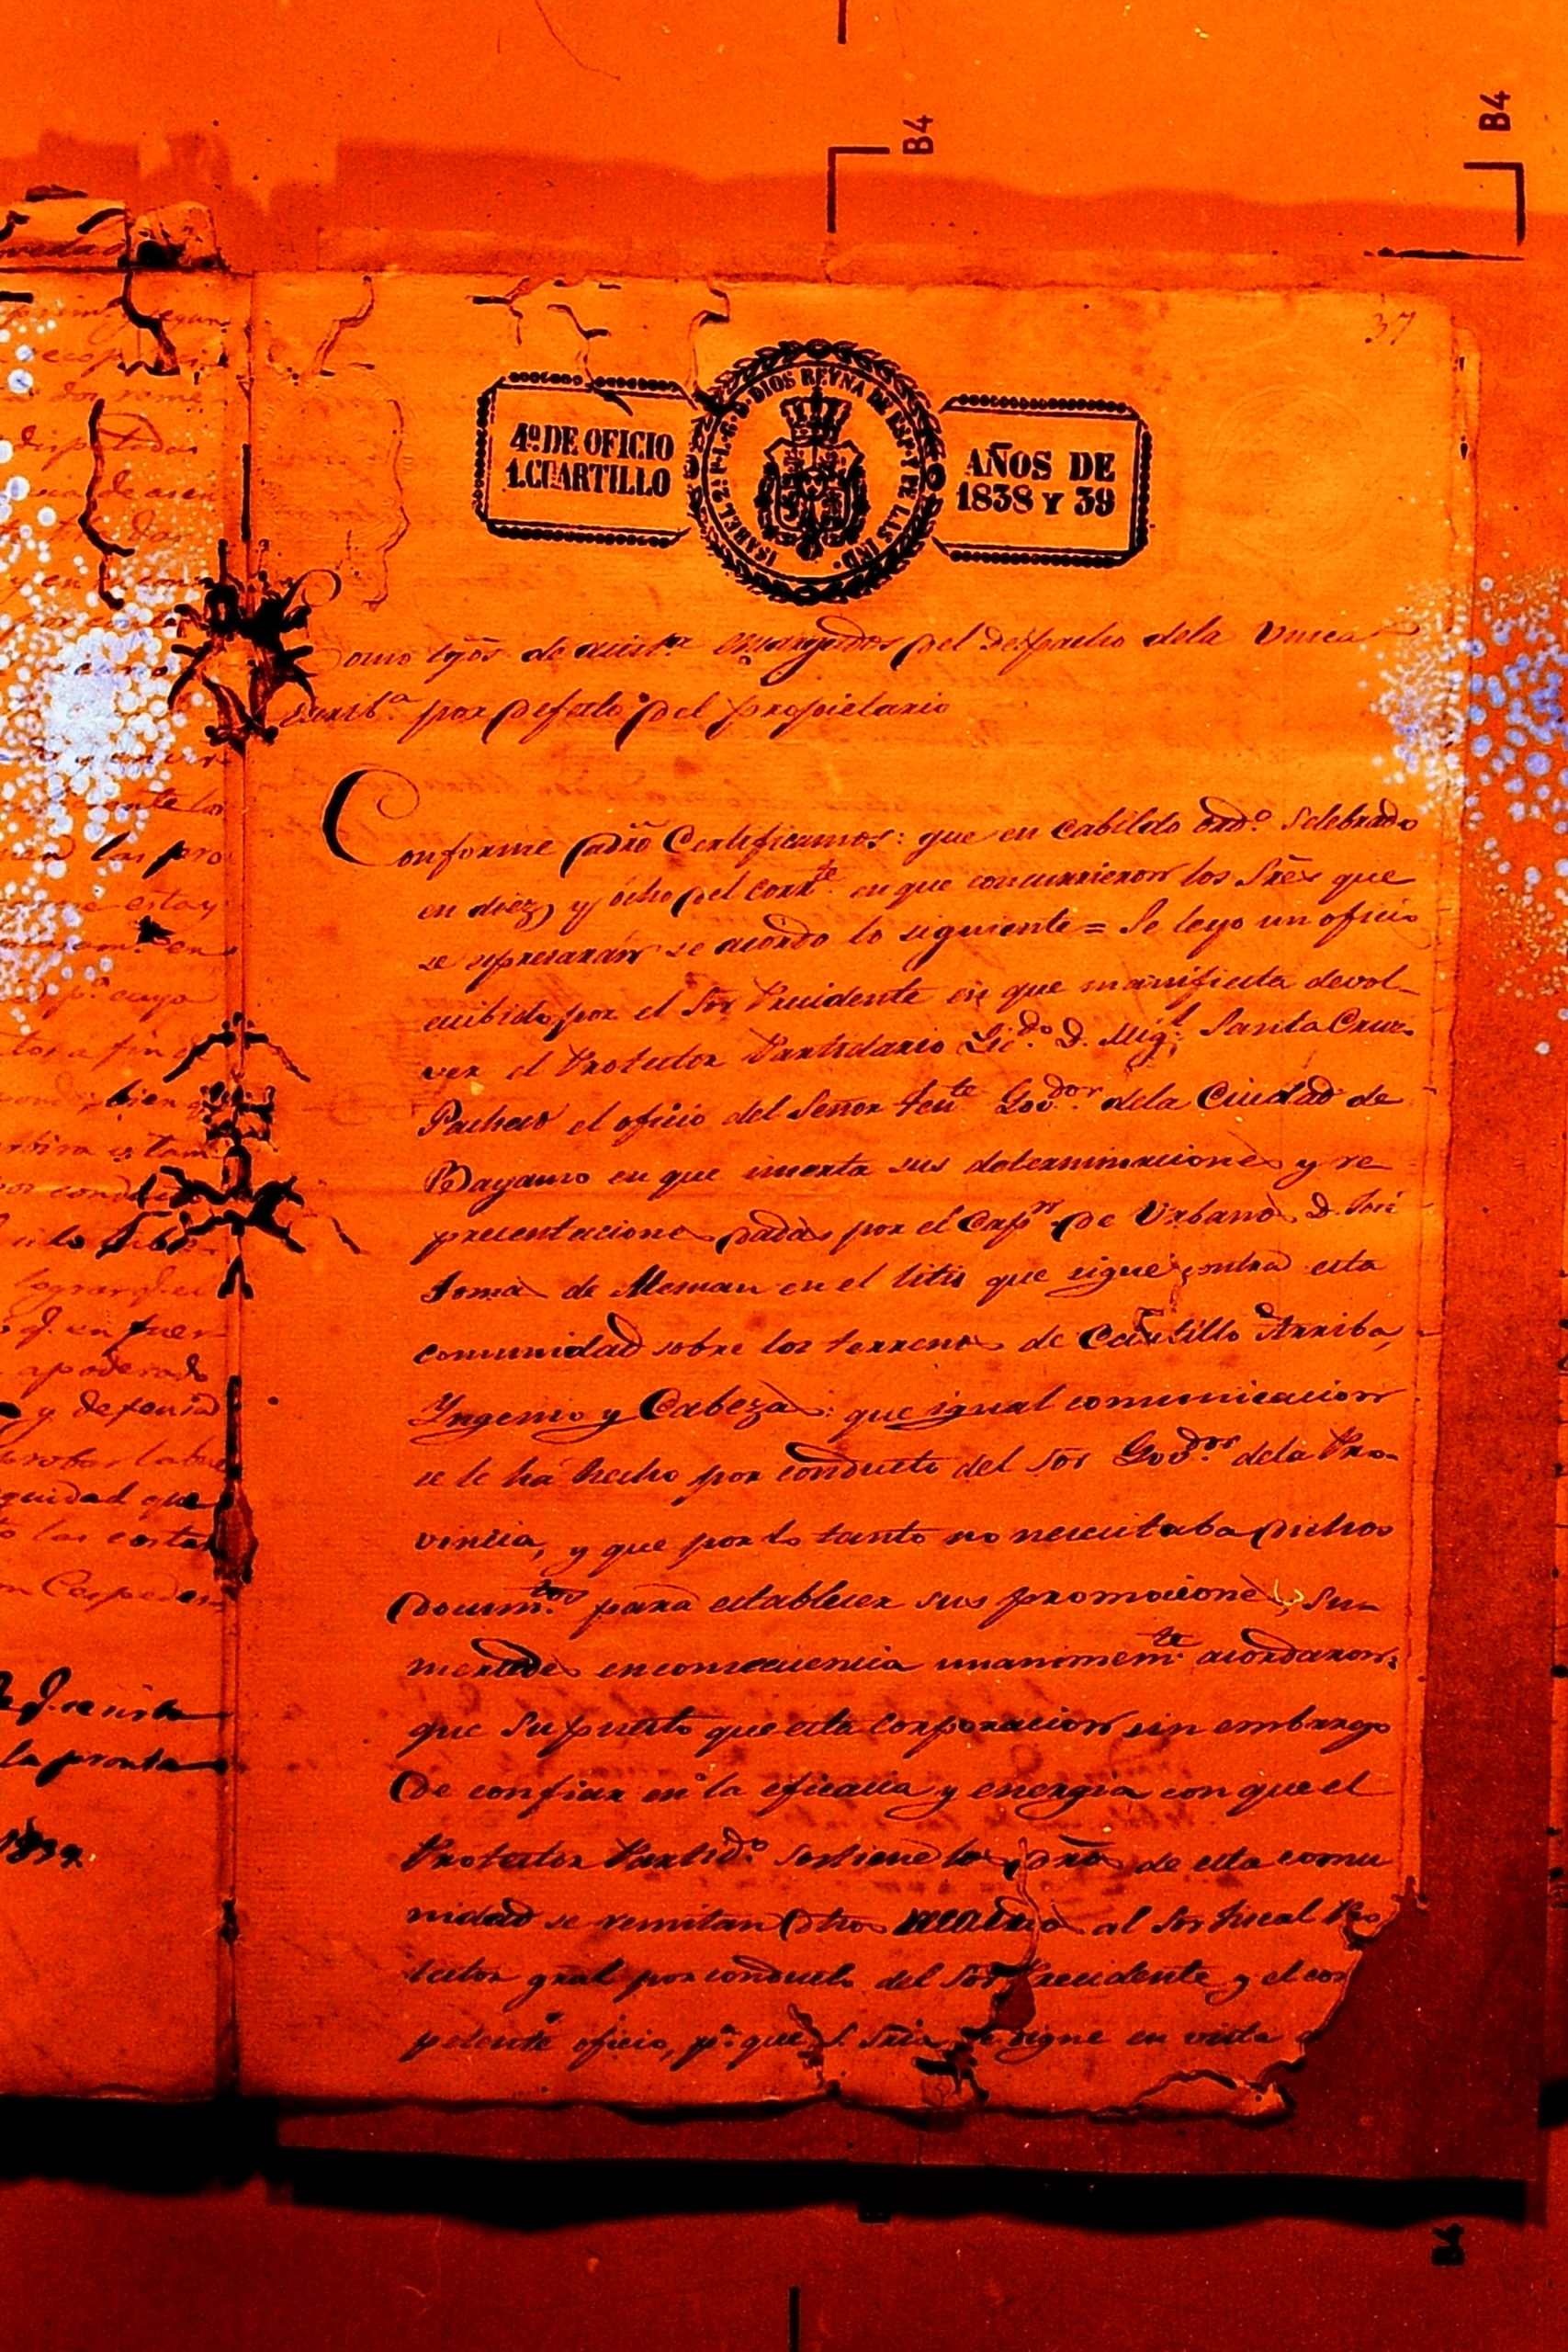 B4
B4
37
4º DE OFICIO
1.CUARTILLO
ISABEL 2ª P.L.G.D. DIOS REYNA DE ESP. Y DE LAS IND.
AÑOS DE
1838 Y 39
Como tgõs de asistª encargados del despacho dela Unica
Escribª por defecto del propietario
Conforme a dro Certificamos: que en cabildo ordº selebrado
en diez y ocho del corrte en que concurrieron los Sres que
se espresarán se acordo lo siguiente = Se leyo un oficio
recibido por el Sor Precidente en que manifiesta devol-
ver el Protector Partidario Licdo D. Migl Santa Cruz
Pacheco el oficio del Señor Tente Govdor dela Ciudad de
Bayamo en que inserta sus determinaciones y re
precentaciones dadas por el Capn de Urbanos D. José
Tomas de Aleman en el litis que sigue contra esta
comunidad sobre los terrenos de Cautillo Arriba,
Yngenio y Cabezas: que igual comunicacion
se le há hecho por conducto del Sor Govdor dela Pro-
vincia, y que por lo tanto no necesitaba dichos
documtos para establecer sus promociones, Sus
mercedes enconsecuencia unanimemte acordaron:
que Supuesto que esta corporacion sin embargo
de confiar en la eficacia y energia con que el
Protector Partidº sostiene los dros de esta comu
nidad se remitan dhos al Sor Fiscal Pro
tector gral por conducto del Sor Precidente y el com
petente oficio, pª que S. Sria se digne en vista
prim y segun
dos reme-
disputados
na de asien
ante los
men las pro
me estoy
pª cuyo
bien
por conducto
lograr q. el
q. en fuer
apoderado
y defensa
probar la
guidad que
to las costas
n Cespedes
la pronta